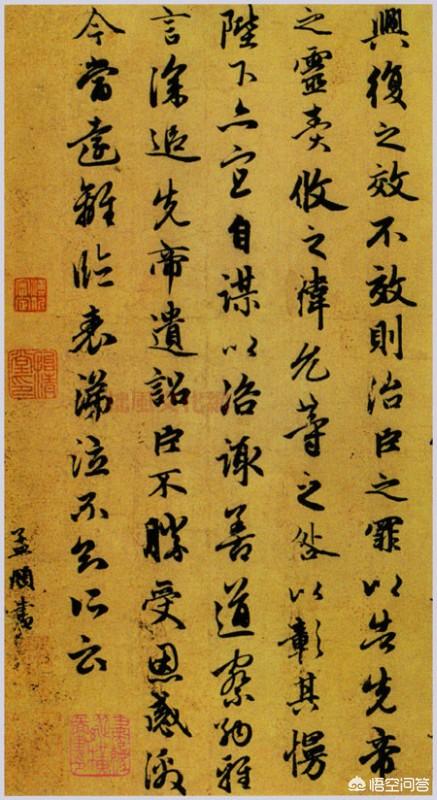 興復之效不效則治臣之罪以告先帝
之靈責攸之禕允等之咎以彰其慢
陛下亦宜自謀以咨諏善道察納雅
言深追先帝遺詔臣不勝受恩感激
今當遠離臨表涕泣不知所云
孟頫書
悟空问答